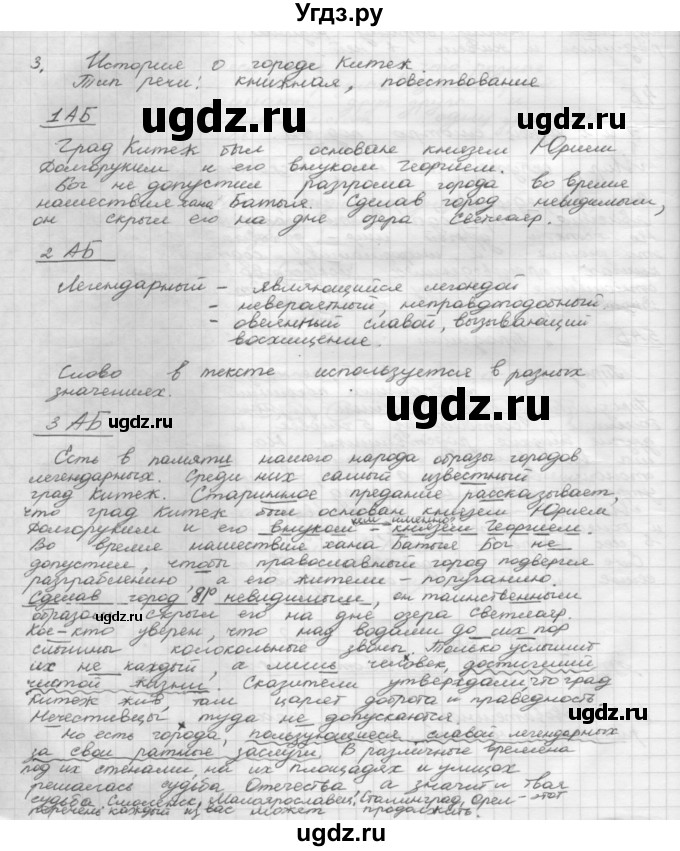 Угдз.ру
3. История о городе Китеж.
Тип речи: книжная, повествование
1 АБ
Град Китеж был основан князем Юрием
Долгоруким и его внуком Георгием.
Бог не допустил разгрома города во время
нашествия хана Батыя. Сделав город невидимым,
он скрыл его на дне озера Светлояр.
2 АБ
Легендарный – являющийся легендой
– невероятный, неправдоподобный
– овеянный славой, вызывающий
восхищение.
Слово в тексте используется в разных
значениях.
3 АБ
Есть в памяти нашего народа образы городов
легендарных. Среди них самый известный
град Китеж. Старинное предание рассказывает,
что град Китеж был основан князем Юрием
Долгоруким и его внуком – князем Георгием.
Во время нашествия хана Батыя Бог не
допустил, чтобы православный город подвергся
разграблению, а его жители – поруганию.
Сделав город невидимым, он таинственным
образом скрыл его на дне озера Светлояр.
Кое-кто уверен, что над водами до сих пор
слышны колокольные звоны. Только услышит
их не каждый, а лишь человек, достигший
чистой жизни. Сказители утверждали, что град
Китеж жив, там царят доброта и праведность
Нечестивцы туда не допускаются.
Но есть города, пользующиеся славой легендарных
за свои ратные заслуги. В различные времена
под их стенами, на их площадях и улицах
решалась судьба Отечества, а значит и твоя
судьба. Смоленск, Малоярославец, Сталинград, Орел – этот
перечень каждый из вас может продолжить.
ugdz.ru
ugdz.ru
ugdz.ru
ugdz.ru
ugdz.ru
ugdz.ru
ugdz.ru
ugdz.ru
ugdz.ru
ugdz.ru
ugdz.ru